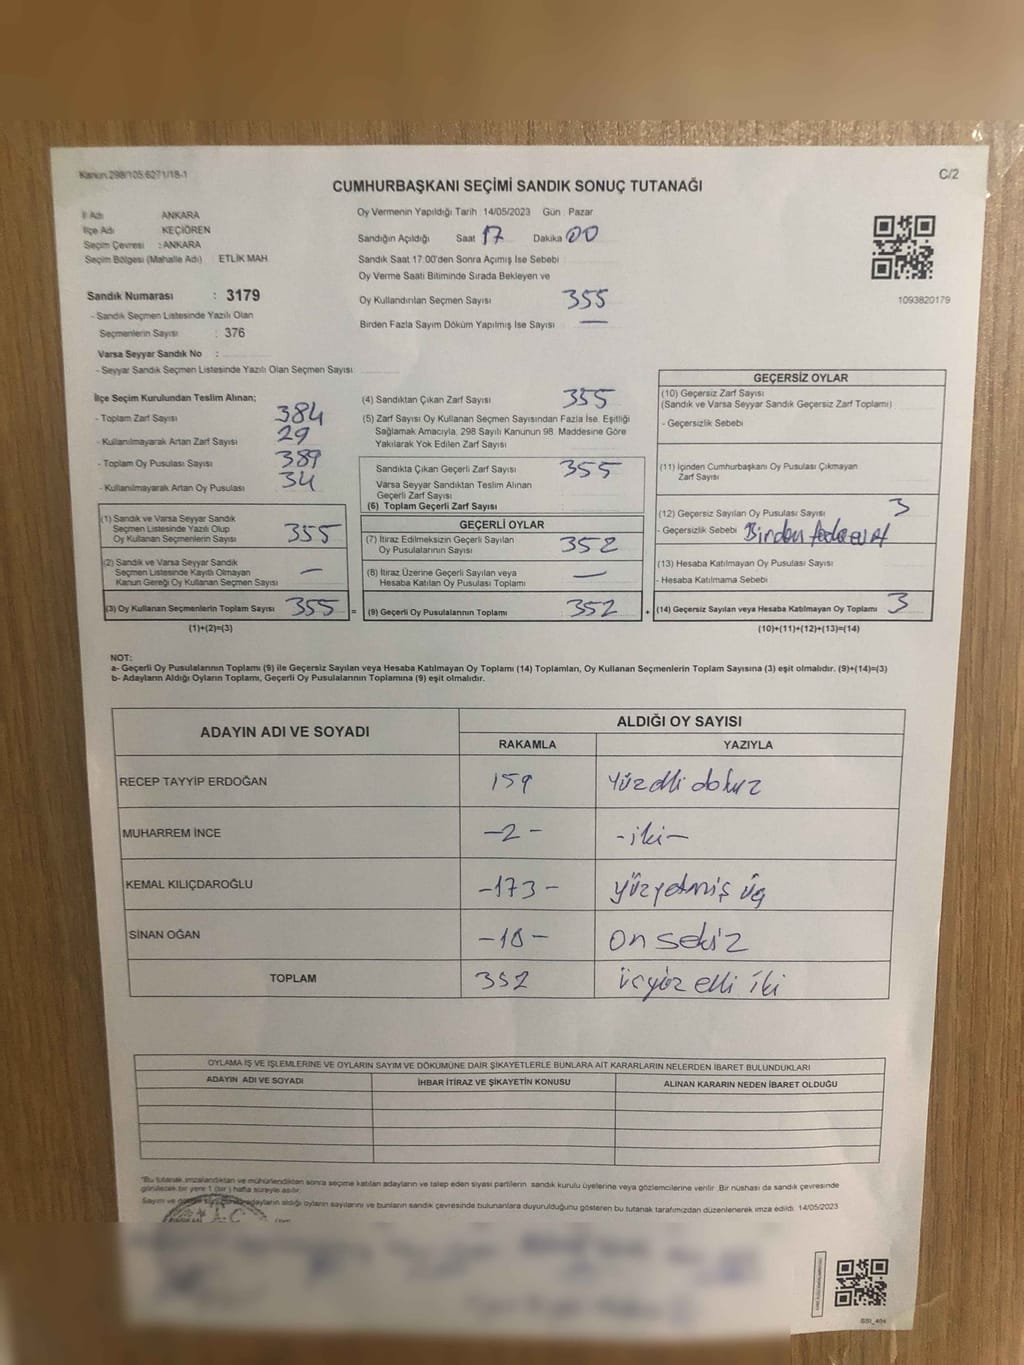 Kanun.298/105.6271/18-1
C/2
CUMHURBAŞKANI SEÇİMİ SANDIK SONUÇ TUTANAĞI
İl Adı ANKARA
İlçe Adı KEÇİÖREN
Seçim Çevresi : ANKARA
Seçim Bölgesi (Mahalle Adı) : ETLİK MAH
Sandık Numarası : 3179
- Sandık Seçmen Listesinde Yazılı Olan
Seçmenlerin Sayısı : 376
Varsa Seyyar Sandık No :
- Seyyar Sandık Seçmen Listesinde Yazılı Olan Seçmen Sayısı
Oy Vermenin Yapıldığı Tarih : 14/05/2023 Gün : Pazar
Sandığın Açıldığı Saat 17 Dakika 00
Sandık Saat 17.00'den Sonra Açımış İse Sebebi
Oy Verme Saati Bitiminde Sırada Bekleyen ve
Oy Kullandırılan Seçmen Sayısı 355
Birden Fazla Sayım Döküm Yapılmış İse Sayısı —
1093820179
İlçe Seçim Kurulundan Teslim Alınan;
- Toplam Zarf Sayısı 384
- Kullanılmayarak Artan Zarf Sayısı 29
- Toplam Oy Pusulası Sayısı 389
- Kullanılmayarak Artan Oy Pusulası 34
(1) Sandık ve Varsa Seyyar Sandık
Seçmen Listesinde Yazılı Olup
Oy Kullanan Seçmenlerin Sayısı 355
(2) Sandık ve Varsa Seyyar Sandık
Seçmen Listesinde Kayıtlı Olmayan
Kanun Gereği Oy Kullanan Seçmen Sayısı —
(3) Oy Kullanan Seçmenlerin Toplam Sayısı 355 =
(1)+(2)=(3)
(4) Sandıktan Çıkan Zarf Sayısı 355
(5) Zarf Sayısı Oy Kullanan Seçmen Sayısından Fazla İse, Eşitliği
Sağlamak Amacıyla, 298 Sayılı Kanunun 98. Maddesine Göre
Yakılarak Yok Edilen Zarf Sayısı
Sandıkta Çıkan Geçerli Zarf Sayısı 355
Varsa Seyyar Sandıktan Teslim Alınan
Geçerli Zarf Sayısı
(6) Toplam Geçerli Zarf Sayısı
GEÇERLİ OYLAR
(7) İtiraz Edilmeksizin Geçerli Sayılan
Oy Pusulalarının Sayısı 352
(8) İtiraz Üzerine Geçerli Sayılan veya
Hesaba Katılan Oy Pusulası Toplamı —
(9) Geçerli Oy Pusulalarının Toplamı 352 +
GEÇERSİZ OYLAR
(10) Geçersiz Zarf Sayısı
(Sandık ve Varsa Seyyar Sandık Geçersiz Zarf Toplamı)
- Geçersizlik Sebebi
(11) İçinden Cumhurbaşkanı Oy Pusulası Çıkmayan
Zarf Sayısı
(12) Geçersiz Sayılan Oy Pusulası Sayısı 3
- Geçersizlik Sebebi Birden
(13) Hesaba Katılmayan Oy Pusulası Sayısı
- Hesaba Katılmama Sebebi
(14) Geçersiz Sayılan veya Hesaba Katılmayan Oy Toplamı 3
(10)+(11)+(12)+(13)=(14)
NOT:
a- Geçerli Oy Pusulalarının Toplamı (9) ile Geçersiz Sayılan veya Hesaba Katılmayan Oy Toplamı (14) Toplamları, Oy Kullanan Seçmenlerin Toplam Sayısına (3) eşit olmalıdır. (9)+(14)=(3)
b- Adayların Aldığı Oyların Toplamı, Geçerli Oy Pusulalarının Toplamına (9) eşit olmalıdır.
ADAYIN ADI VE SOYADI ALDIĞI OY SAYISI
RAKAMLA YAZIYLA
RECEP TAYYİP ERDOĞAN 159 Yüzelli dokuz
MUHARREM İNCE -2- -iki-
KEMAL KILIÇDAROĞLU -173- yüzyetmiş üç
SİNAN OĞAN -18- on sekiz
TOPLAM 352 üçyüz elli iki
OYLAMA İŞ VE İŞLEMLERİNE VE OYLARIN SAYIM VE DÖKÜMÜNE DAİR ŞİKAYETLERLE BUNLARA AİT KARARLARIN NELERDEN İBARET BULUNDUKLARI
ADAYIN ADI VE SOYADI İHBAR İTİRAZ VE ŞİKAYETİN KONUSU ALINAN KARARIN NEDEN İBARET OLDUĞU
"Bu tutanak imzalandıktan ve mühürlendikten sonra seçime katılan adayların ve talep eden siyasi partilerin sandık kurulu üyelerine veya gözlemcilerine verilir .Bir nüshası da sandık çevresinde
görülecek bir yere 1 (bir) hafta süreyle asılır.
Sayım ve adayların aldığı oyların sayılarını ve bunların sandık çevresinde bulunanlara duyurulduğunu gösteren bu tutanak tarafımızdan düzenlenerek imza edildi. 14/05/2023